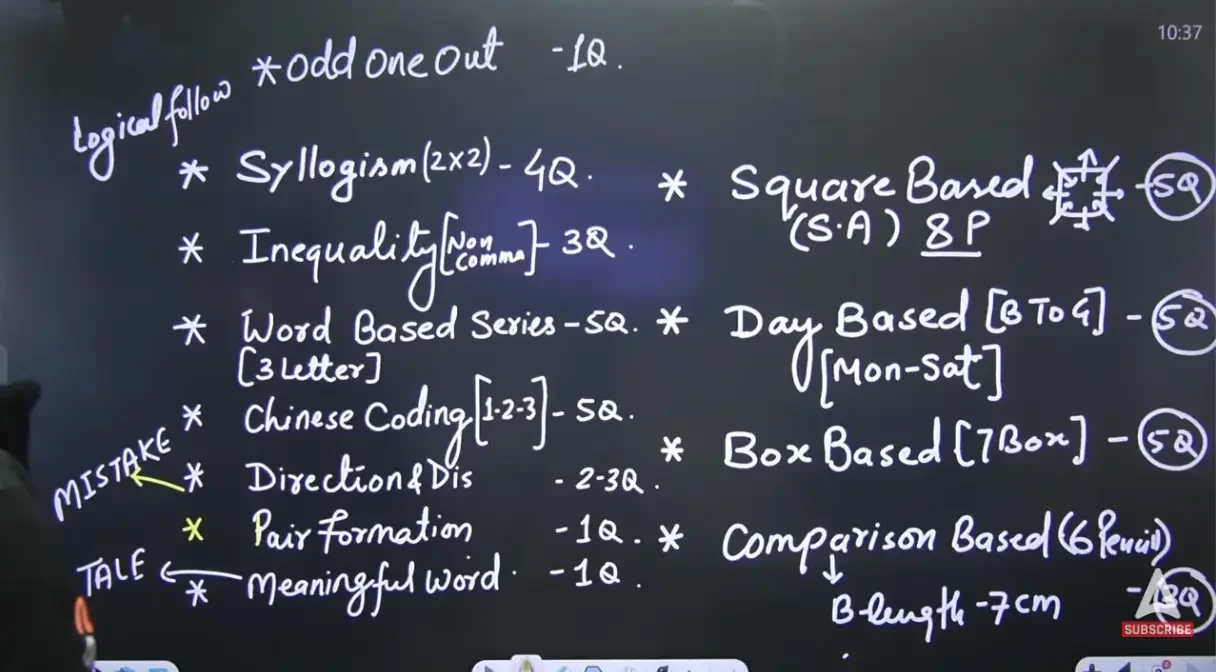 10:37
* odd one out - 1Q.
Logical follow
* Syllogism (2x2) - 4Q.
* Inequality [Non Comma] - 3Q.
* Word Based Series - 5Q.
[3 Letter]
* Chinese Coding [1-2-3] - 5Q.
MISTAKE
* Direction & Dis - 2-3Q.
* Pair formation - 1Q.
TALE
* Meaningful word. - 1Q.
* Square Based - 5Q
(S.A) 8P
* Day Based [B To G] - 5Q
[Mon-Sat]
* Box Based [7 Box] - 5Q
* Comparison Based (6 Pencil) - 3Q
B-length - 7 cm
SUBSCRIBE